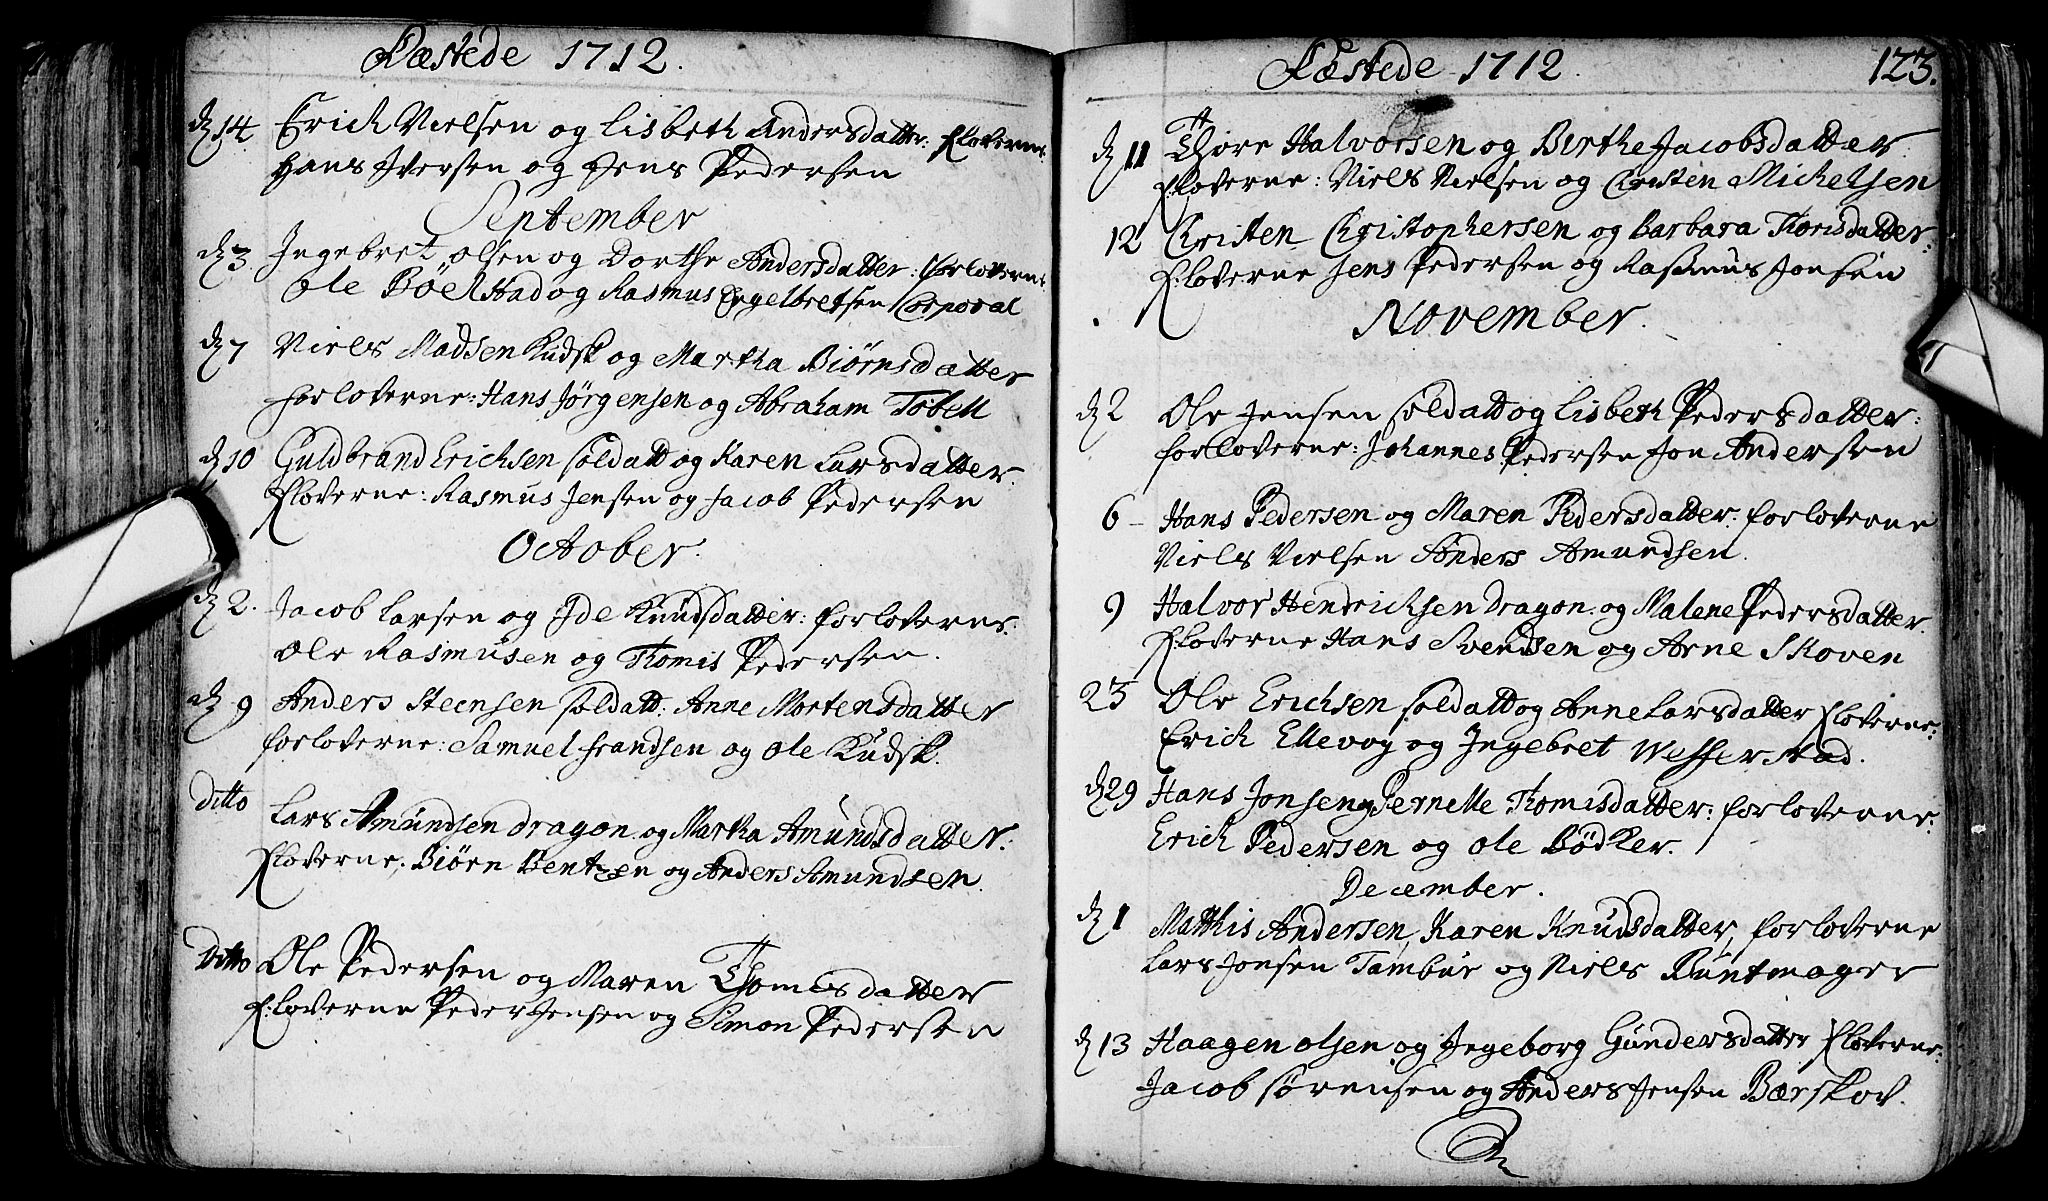 Fæstede 1712.
d 14. Erich Nielsen og Lisbeth Andersdatter: Floverne
Hans Iversen og Jens Pedersen
September
d 3 Ingebret Olsen og Dorthe Andersdatter: forloverne
Ole Böelstad og Rasmus Engelbretsen Corporal
d 7 Niels Madsen Kudsk og Martha Biörnsdatter
forloverne: Hans Jörgensen og Abraham Tobell
d 10 Guldbrand Erichsen soldatt og Karen Larsdatter.
Floverne: Rasmus Jensen og Jacob Pedersen
October.
d 2. Jacob Larsen og Ide Knudsdatter: forloverne:
Ole Rasmusen og Thomis Pedersen.
d 9 Anders Steensen soldatt: Anne Mortensdatter
forloverne: Samuel Frandsen og Ole Kudsk.
Ditto Lars Amundsen Dragon og Martha Amundsdatter:
Floverne: Biörn Bentzen og Anders Amundsen.
Ditto Ole Pedersen og Maren Thomisdatter
F:loverne Peder Jensen og Simon Pedersen
Fæstede 1712. 123.
d 11 Thore Halvorsen og Berthe Jacobsdatter
F:loverne: Niels Nielsen og Christen Michelsen
12 Christen Christophersen og Barbara Thorisdatter:
F:loverne Jens Pedersen og Rasmus Jonsen
November.
d 2 Ole Jensen soldatt og Lisbeth Pedersdatter:
forloverne: Johannes Pedersen Jon Andersen
6 – Hans Pedersen og Maren Pedersdatter: forloverne
Niels Nielsen Anders Amundsen.
9 Halvor Hendrichsen Dragon og Malene Pedersdatter.
Floverne Hans Svendsen og Arne Skoven
23 Ole Erichsen soldatt og Anne Larsdatter Floverne:
Erich Ellevog og Ingebret Wesserstad.
d 29 Hans Jonsen og Pernelle Thomisdatter: forloverne:
Erich Pedersen og Ole Bödker.
December.
d 1 Matthis Andersen, Karen Knudsdatter, forloverne
Lars Jonsen Tambur og Niels Buntmager
d 13 Haagen Olsen og Ingeborg Gundersdatter Floverne:
Jacob Sörensen og Anders Jensen Bærskov.